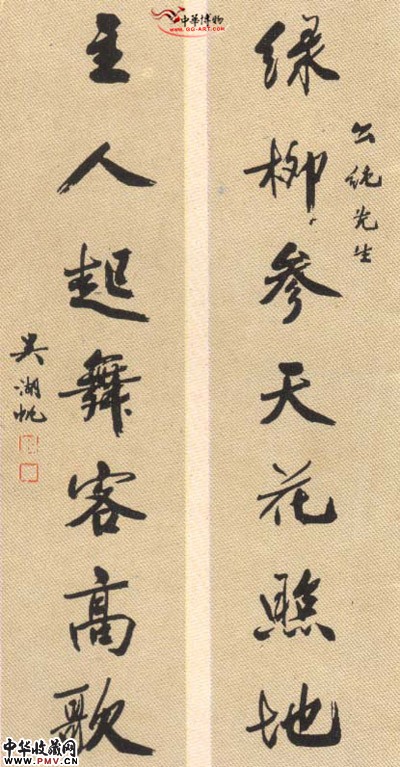 中華博物
www.GG-ART.com
公純先生
綠柳参天花照地
主人起舞客高歌
吴湖帆
中华收藏网
www.PMV.cn